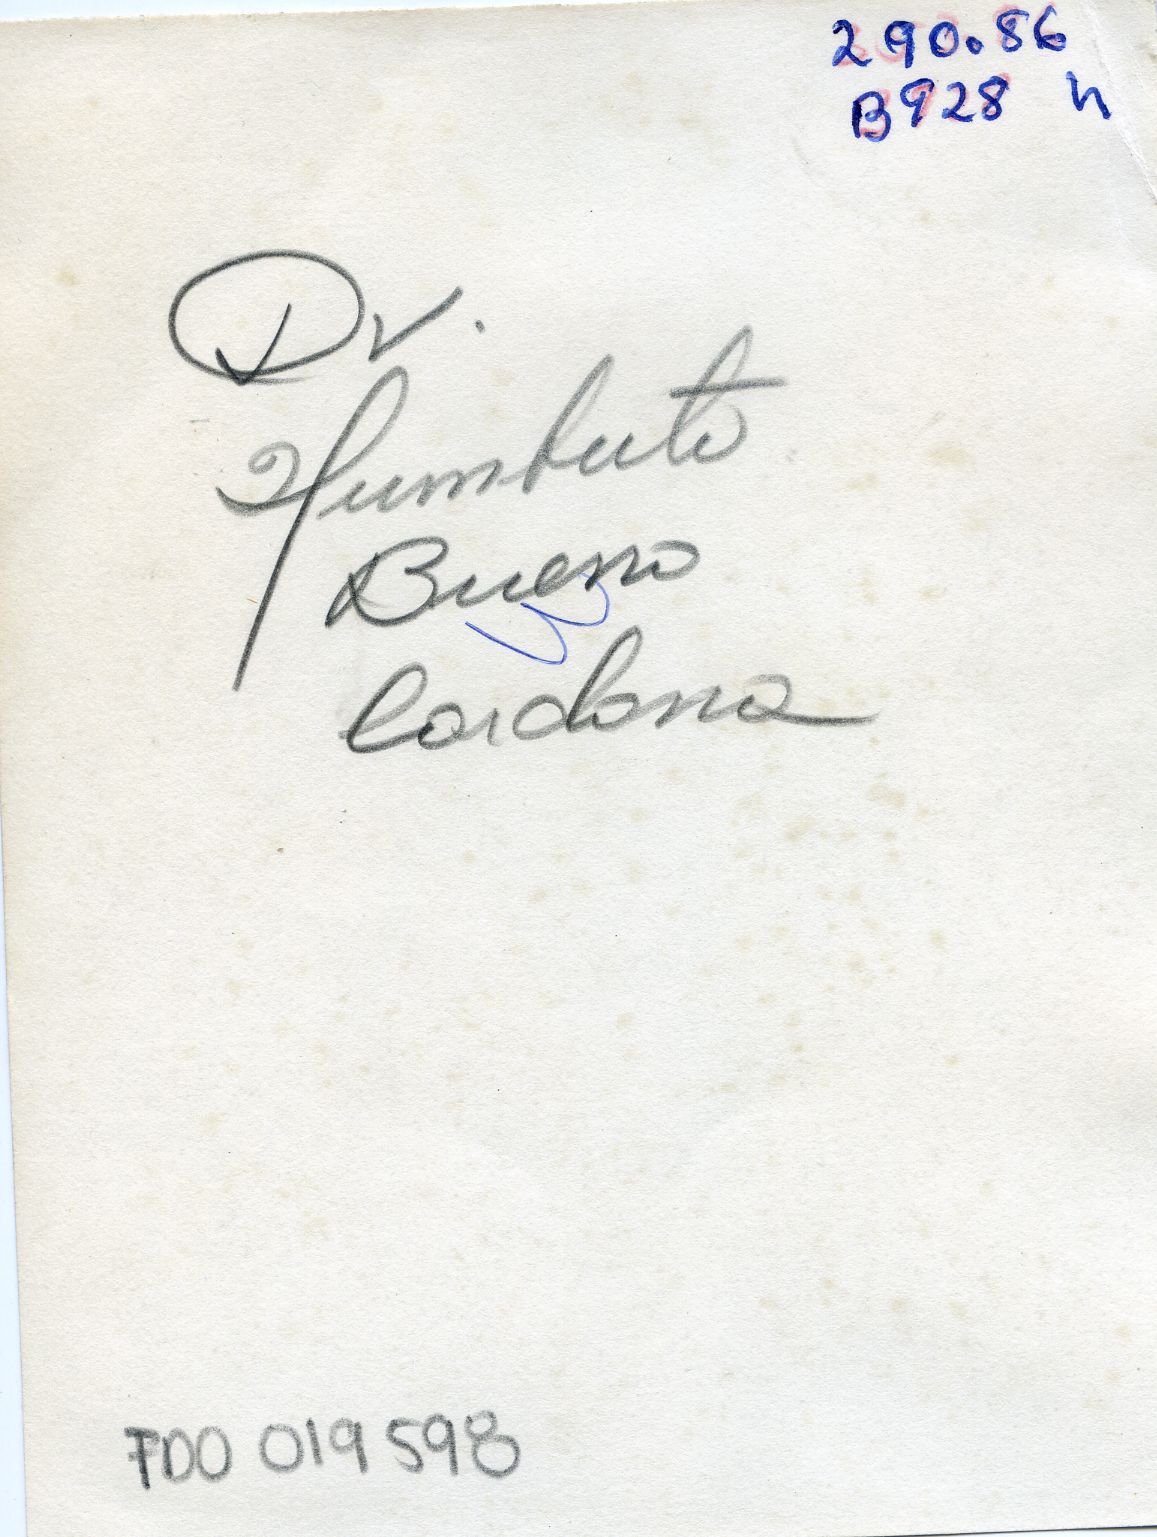 290.86
B928 h
Dr.
Humberto
Bueno
Cardona
FDO 019598